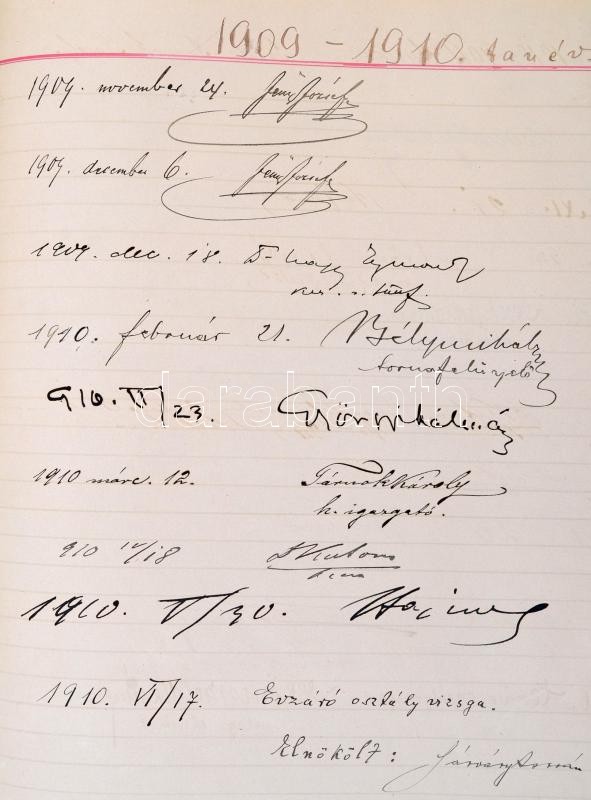 1909 - 1910. tanév.
1909. november 24. Jenő József
1909. december 6. Jenő József
1909. dec. 18. Dr Nagy
1910. február 21. Bély Mihály
tornafelügyelő
910. II/23. György Kálmán
darabanth
1910 márc. 12. Tárnok Károly
h. igazgató.
910 IV/18
1910. V/30.
1910. VI/17. Évzáró osztályvizsga.
Elnökölt: